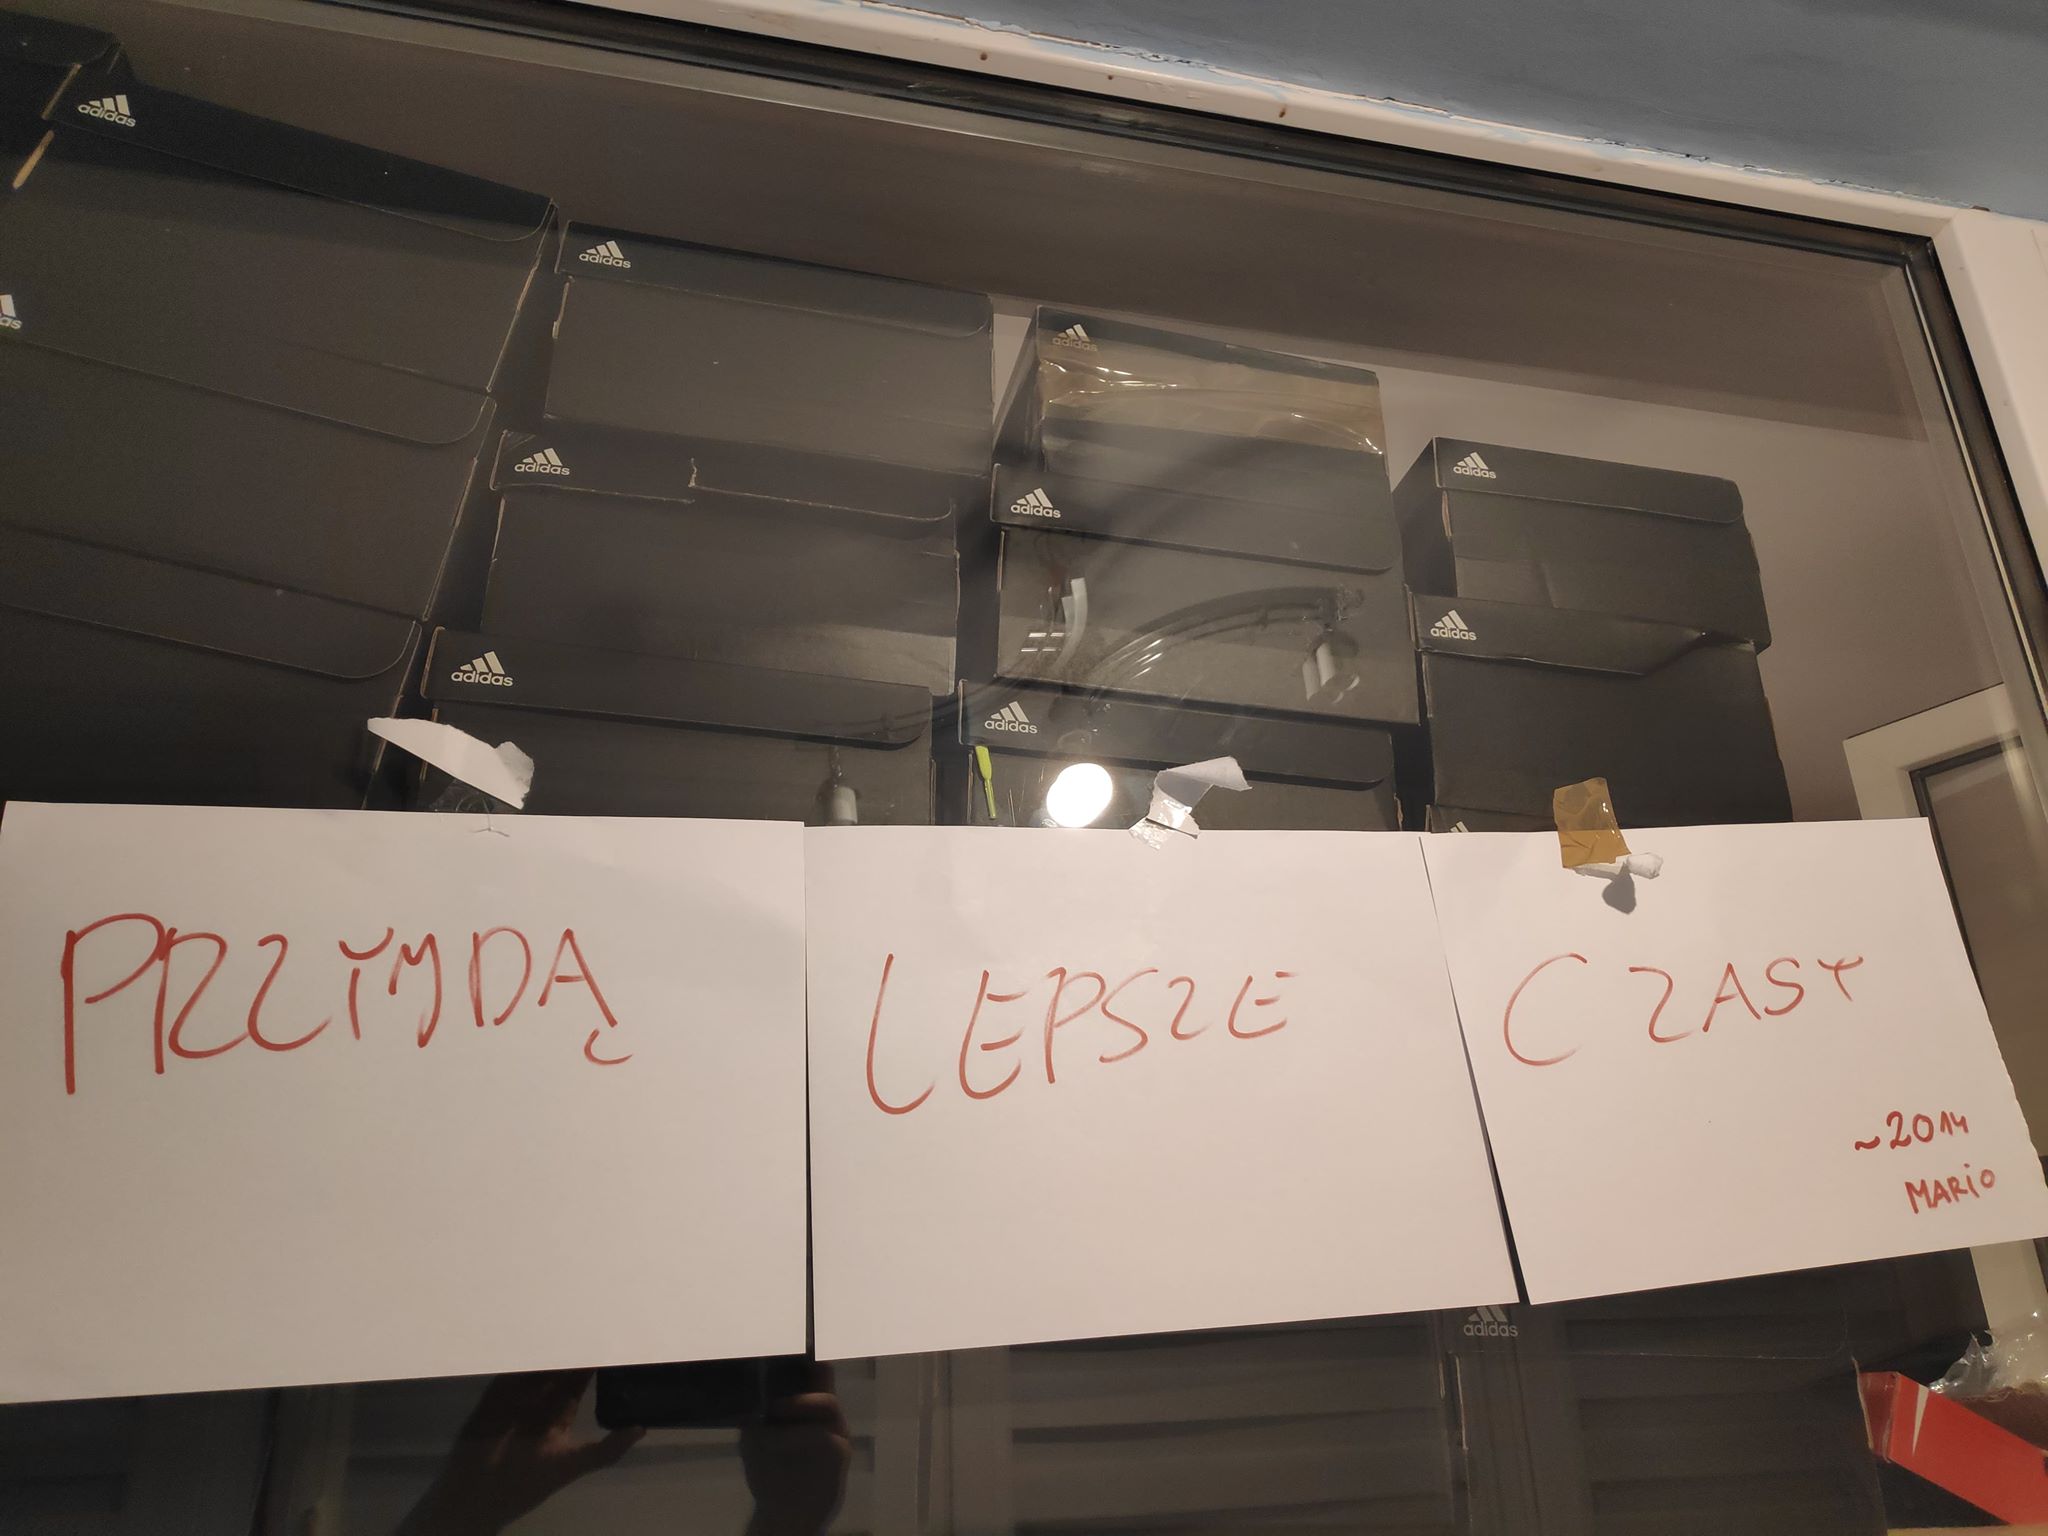 adidas
adidas
adidas
adidas
adidas
adidas
adidas
adidas
adidas
adidas
PRZYJDĄ LEPSZE CZASY
~2014
MARIO
adidas